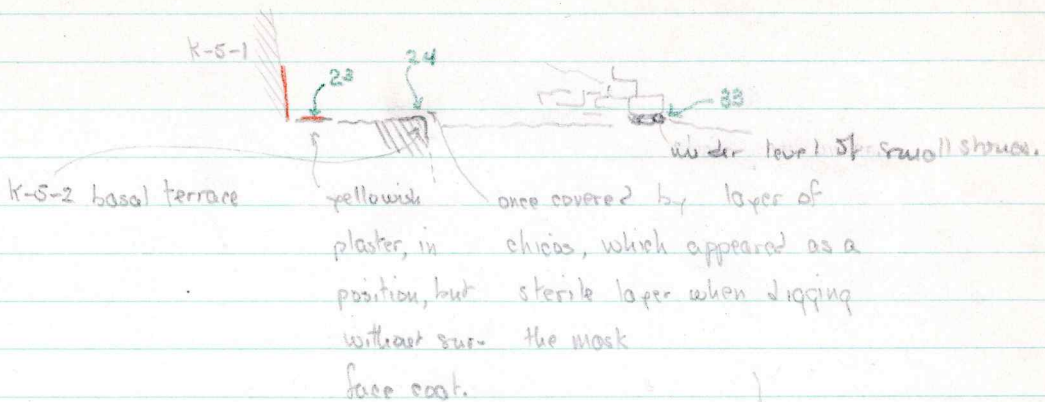 K-5-1
23
24
33
under level of small stones.
K-5-2 basal terrace
yellowish
plaster, in
position, but
without sur-
face coat.
once covered by layer of
chicos, which appeared as a
sterile layer when digging
the mask